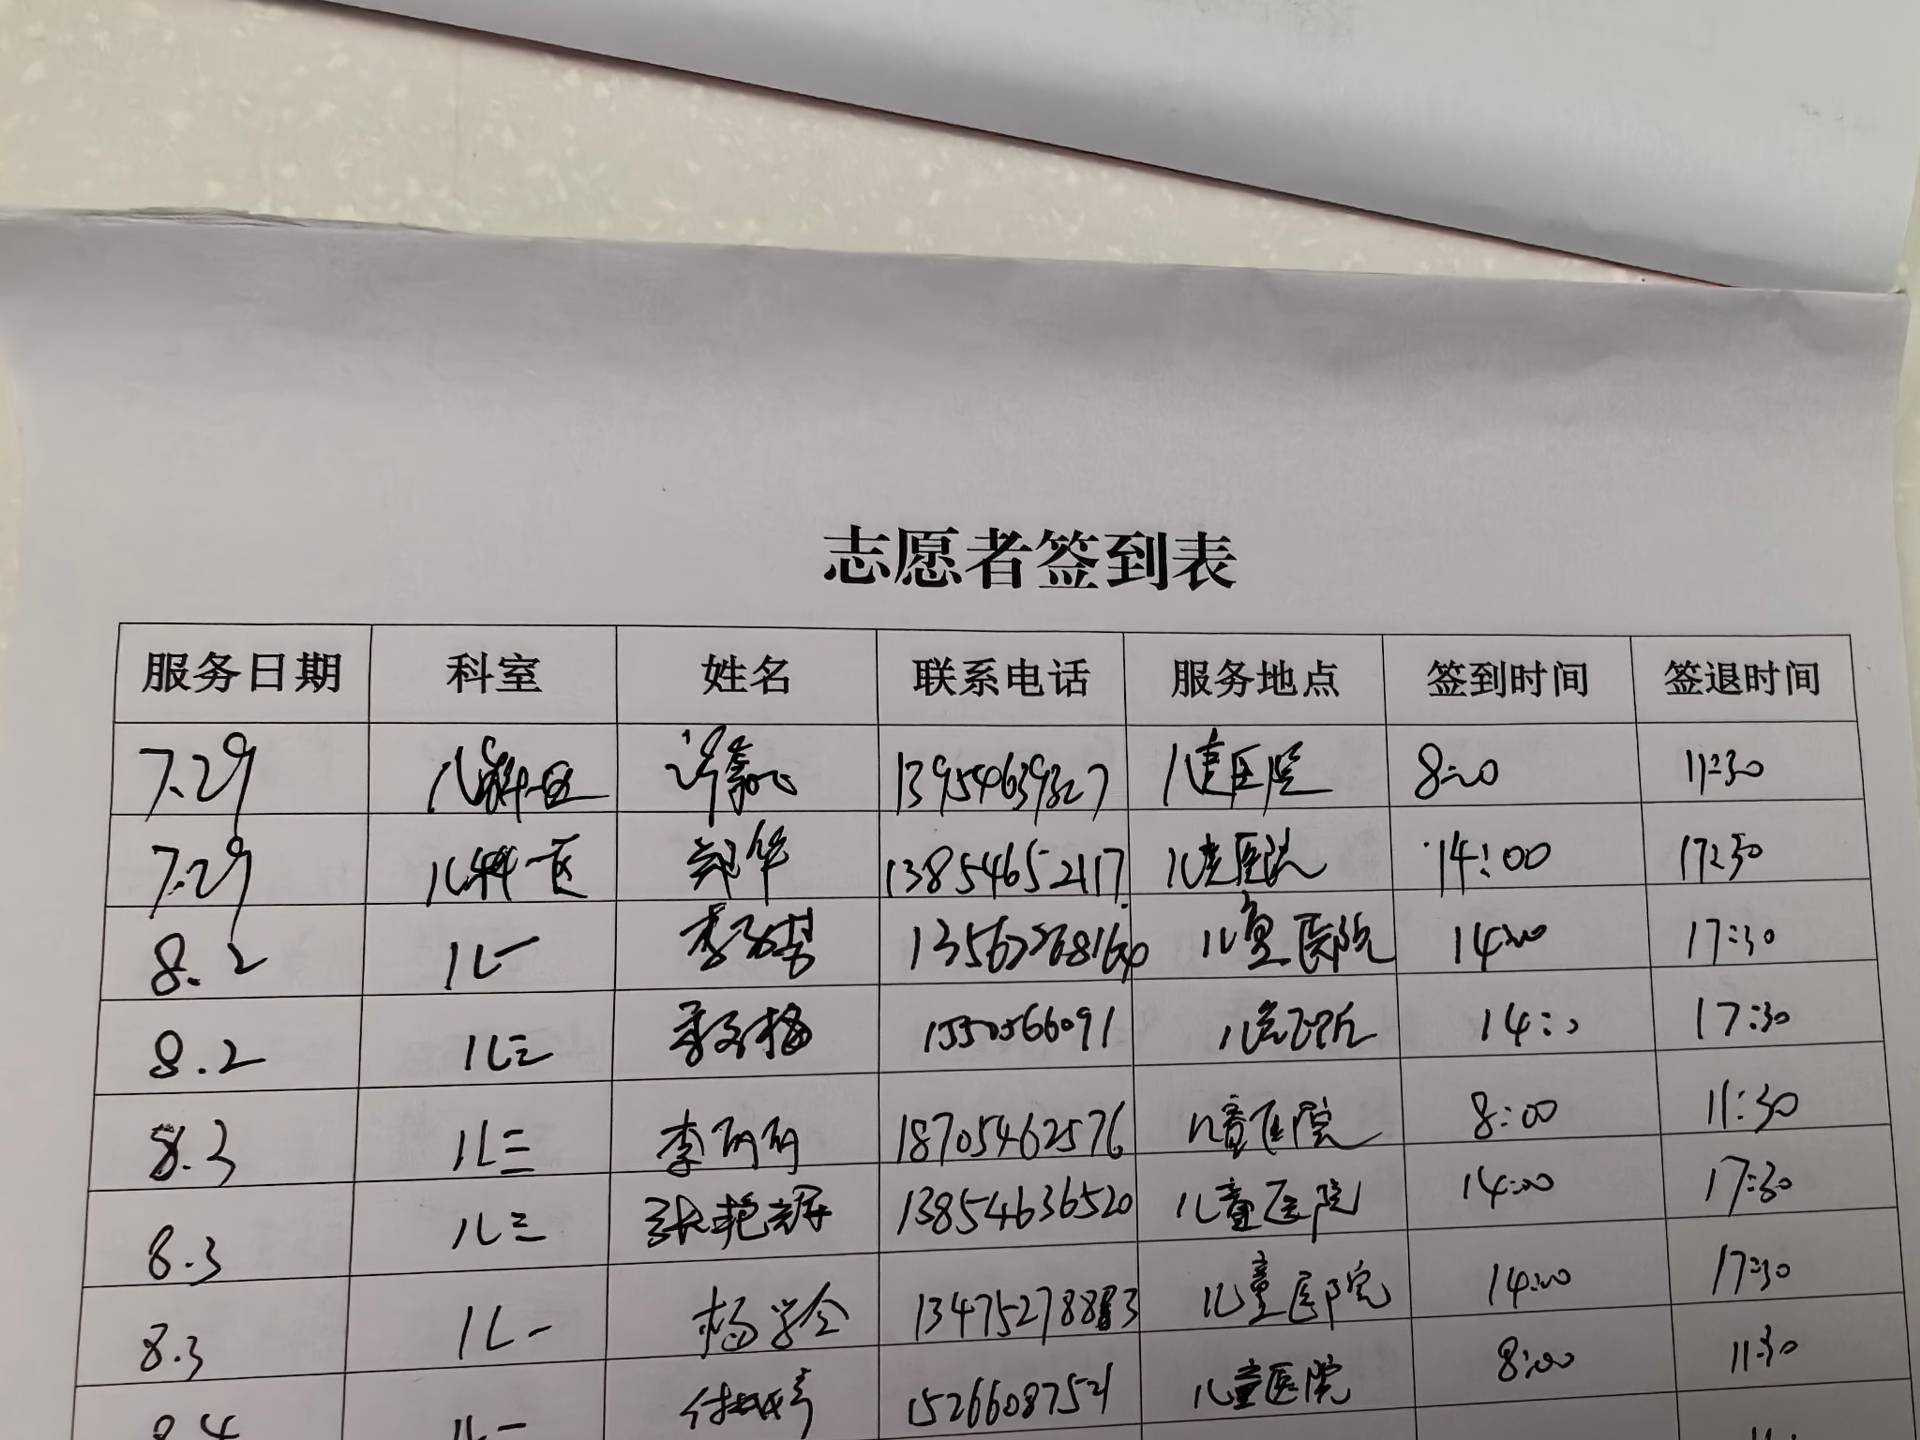 志愿者签到表
服务日期 科室 姓名 联系电话 服务地点 签到时间 签退时间
7.29 儿科一区 13954639327 儿童医院 8:00 11:30
7.29 儿科一区 郑华 13854652117 儿童医院 14:00 17:30
8.2 儿一 儿童医院 14:00 17:30
8.2 儿三 儿童医院 14:00 17:30
8.3 儿三 李丽丽 18705462576 儿童医院 8:00 11:30
8.3 儿三 张艳辉 13854636520 儿童医院 14:00 17:30
8.3 儿一 杨学全 儿童医院 14:00 17:30
8.4 儿一 15266087521 儿童医院 8:00 11:30